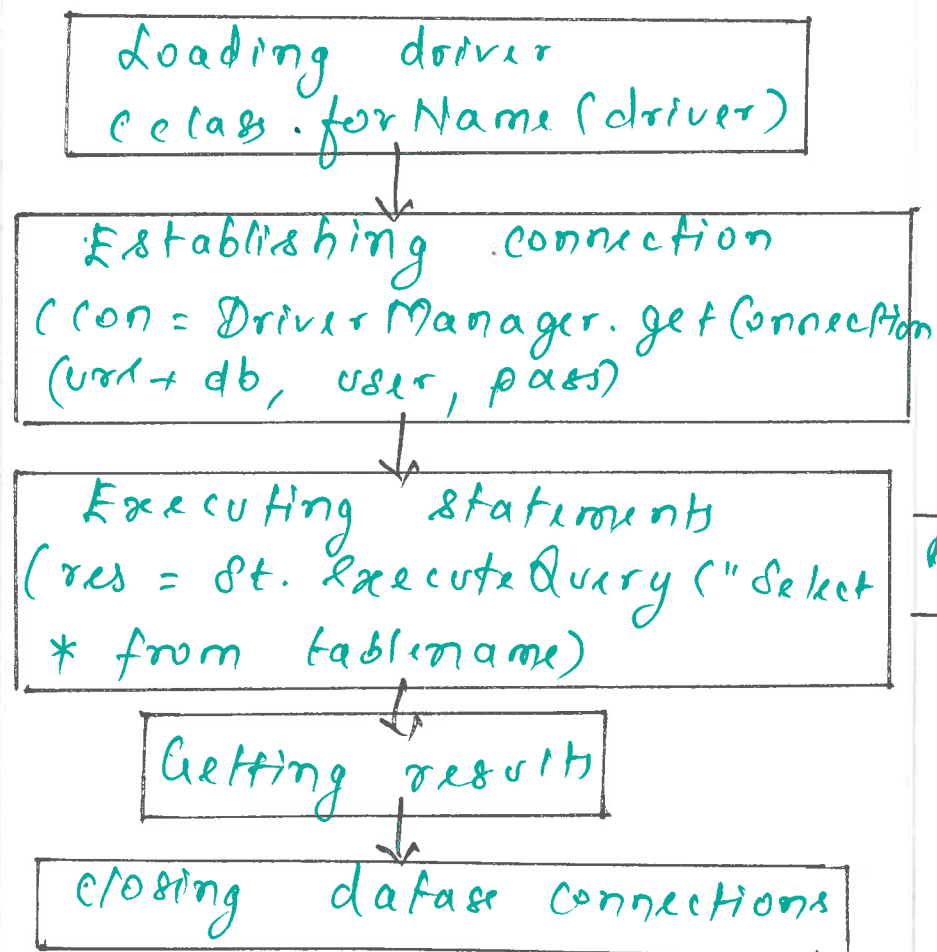 Loading driver
(class.forName(driver)
Establishing connection
(con = DriverManager.getConnection
(url + db, user, pass)
Executing statements
(res = St. executeQuery("Select
* from tablename)
Getting results
closing datase connections